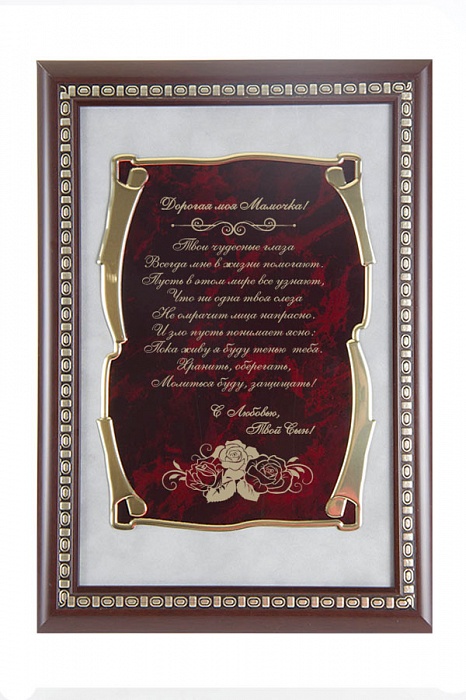 Дорогая моя Мамочка!
Твои чудесные глаза
Всегда мне в жизни помогают.
Пусть в этом мире все узнают,
Что ни одна твоя слеза
Не омрачит лица напрасно.
И зло пусть понимает ясно:
Пока живу я буду тенью тебя.
Хранить, оберегать,
Молиться буду, защищать!
С Любовью,
Твой Сын!